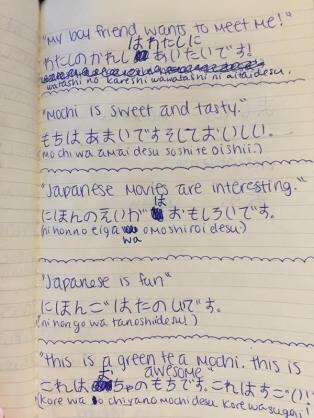 "My boy friend wants to meet me!"
はわたしに
わたしのかれし あいたいです!
warashi no kareshi wawatashi ni aitaidesu.
"Mochi is sweet and tasty."
もちはあまいですそしておいしい。
(mochi wa amai desu soshite oishii.)
"Japanese movies are interesting."
は
にほんのえいが おもしろいです。
(nihonno eiga omoshiroi desu.)
wa
"Japanese is fun"
にほんごはたのしいです。
(nihongo wa tanoshidesu!)
"this is a green tea mochi. this is
ま awesome"
これは ちゃのもちです。これはすごい!
(kore wa chiyano mochi desu kore wa sugoi!